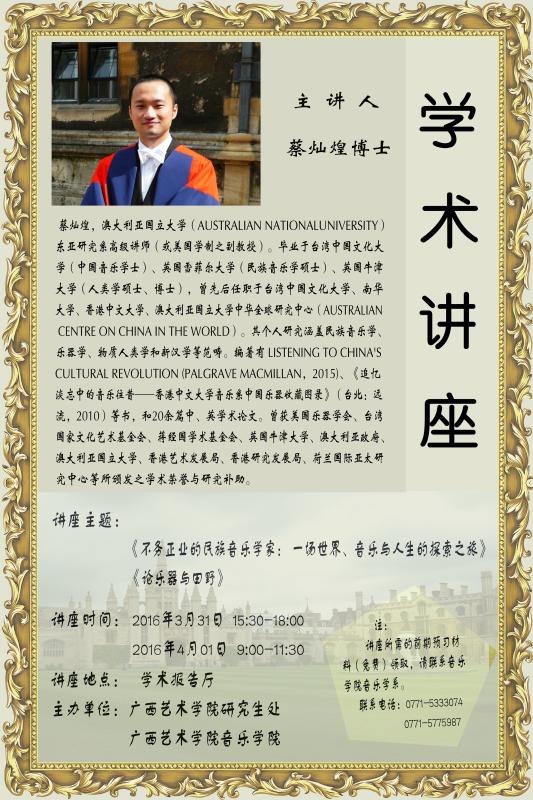 学术讲座
主 讲 人
蔡灿煌博士
蔡灿煌，澳大利亚国立大学（AUSTRALIAN NATIONALUNIVERSITY）
东亚研究系高级讲师（或美国学制之副教授）。毕业于台湾中国文化大
学（中国音乐学士）、英国雪菲尔大学（民族音乐学硕士）、英国牛津
大学（人类学硕士、博士），曾先后任职于台湾中国文化大学、南华
大学、香港中文大学、澳大利亚国立大学中华全球研究中心（AUSTRALIAN
CENTRE ON CHINA IN THE WORLD）。其个人研究涵盖民族音乐学、
乐器学、物质人类学和新汉学等范畴。编著有 LISTENING TO CHINA'S
CULTURAL REVOLUTION (PALGRAVE MACMILLAN，2015)、《追忆
淡忘中的音乐往昔——香港中文大学音乐系中国乐器收藏图录》（台北：远
流，2010）等书，和20余篇中、英学术论文。曾获美国乐器学会、台湾
国家文化艺术基金会、蒋经国学术基金会、英国牛津大学、澳大利亚政府、
澳大利亚国立大学、香港艺术发展局、香港研究发展局、荷兰国际亚太研
究中心等所颁发之学术荣誉与研究补助。
讲座主题：
《不务正业的民族音乐学家：一场世界、音乐与人生的探索之旅》
《论乐器与田野》
讲座时间： 2016年3月31日 15:30-18:00
2016年4月01日 9:00-11:30
讲座地点： 学术报告厅
主办单位：广西艺术学院研究生处
广西艺术学院音乐学院
注：
讲座所需的前期预习材
料（免费）领取，请联系音乐
学院音乐学系。
联系电话：0771-5333074
0771-5775987